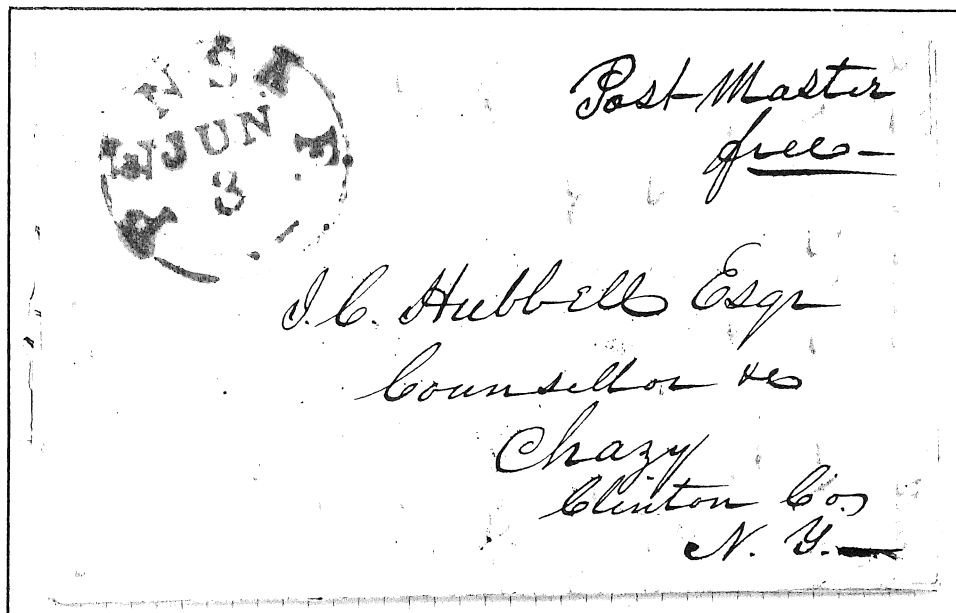 JUN
3
Post Master
free—
J. C. Hubbell Esqr
Counsellor &c
Chazy
Clinton Co.
N. Y.—